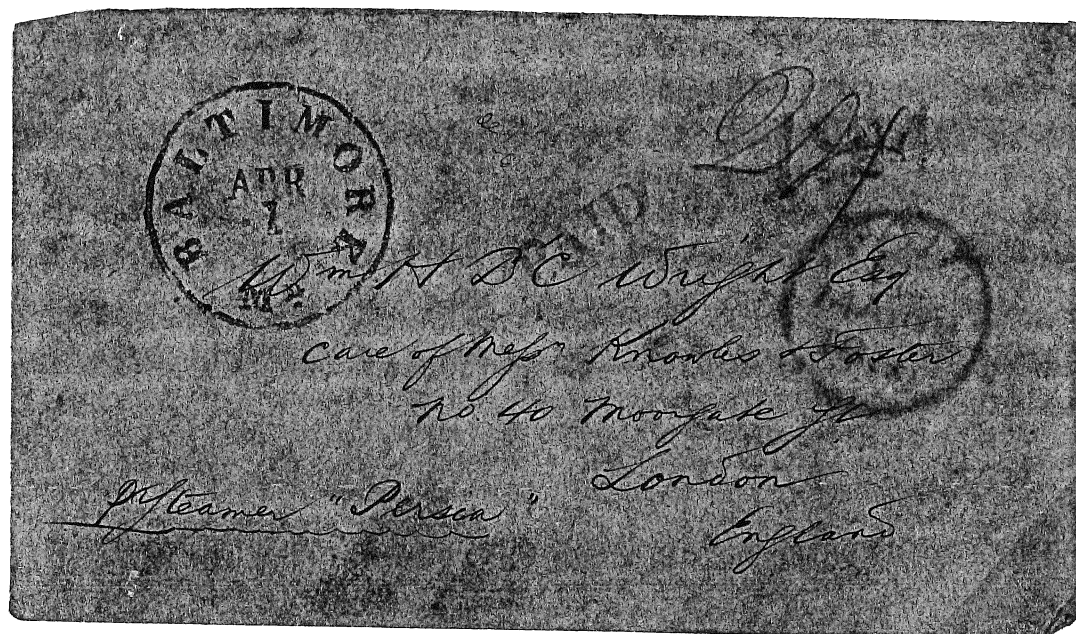 BALTIMORE
APR
1
Md.
PAID
Wm H D C Wright Esq
care of Messrs Knowles & Foster
No 40 Moorgate St
London
England
pr Steamer "Persia"